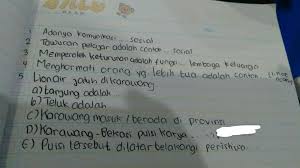 1 Adanya komunikasi ... sosial
2 Tawuran pelajar adalah contoh ... sosial
3 Memperoleh keturunan adalah fungsi ... lembaga keluarga
4 Menghormati orang yg lebih tua adalah contoh
5 Lion air jatuh di karawang
a) tanjung adalah
b) Teluk adalah
c) Karawang masuk / berada di provinsi
D) Karawang-Bekasi puisi karya ...
E) Puisi tersebut di latar belakangi peristiwa